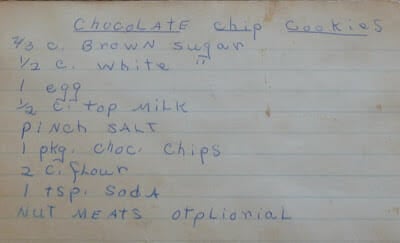 Chocolate Chip Cookies
2/3 c. Brown Sugar
1/2 c. White "
1 egg
1/2 c. top Milk
Pinch SALT
1 pkg. choc. chips
2 c. flour
1 tsp. SodA
NUT MEATS otplionial